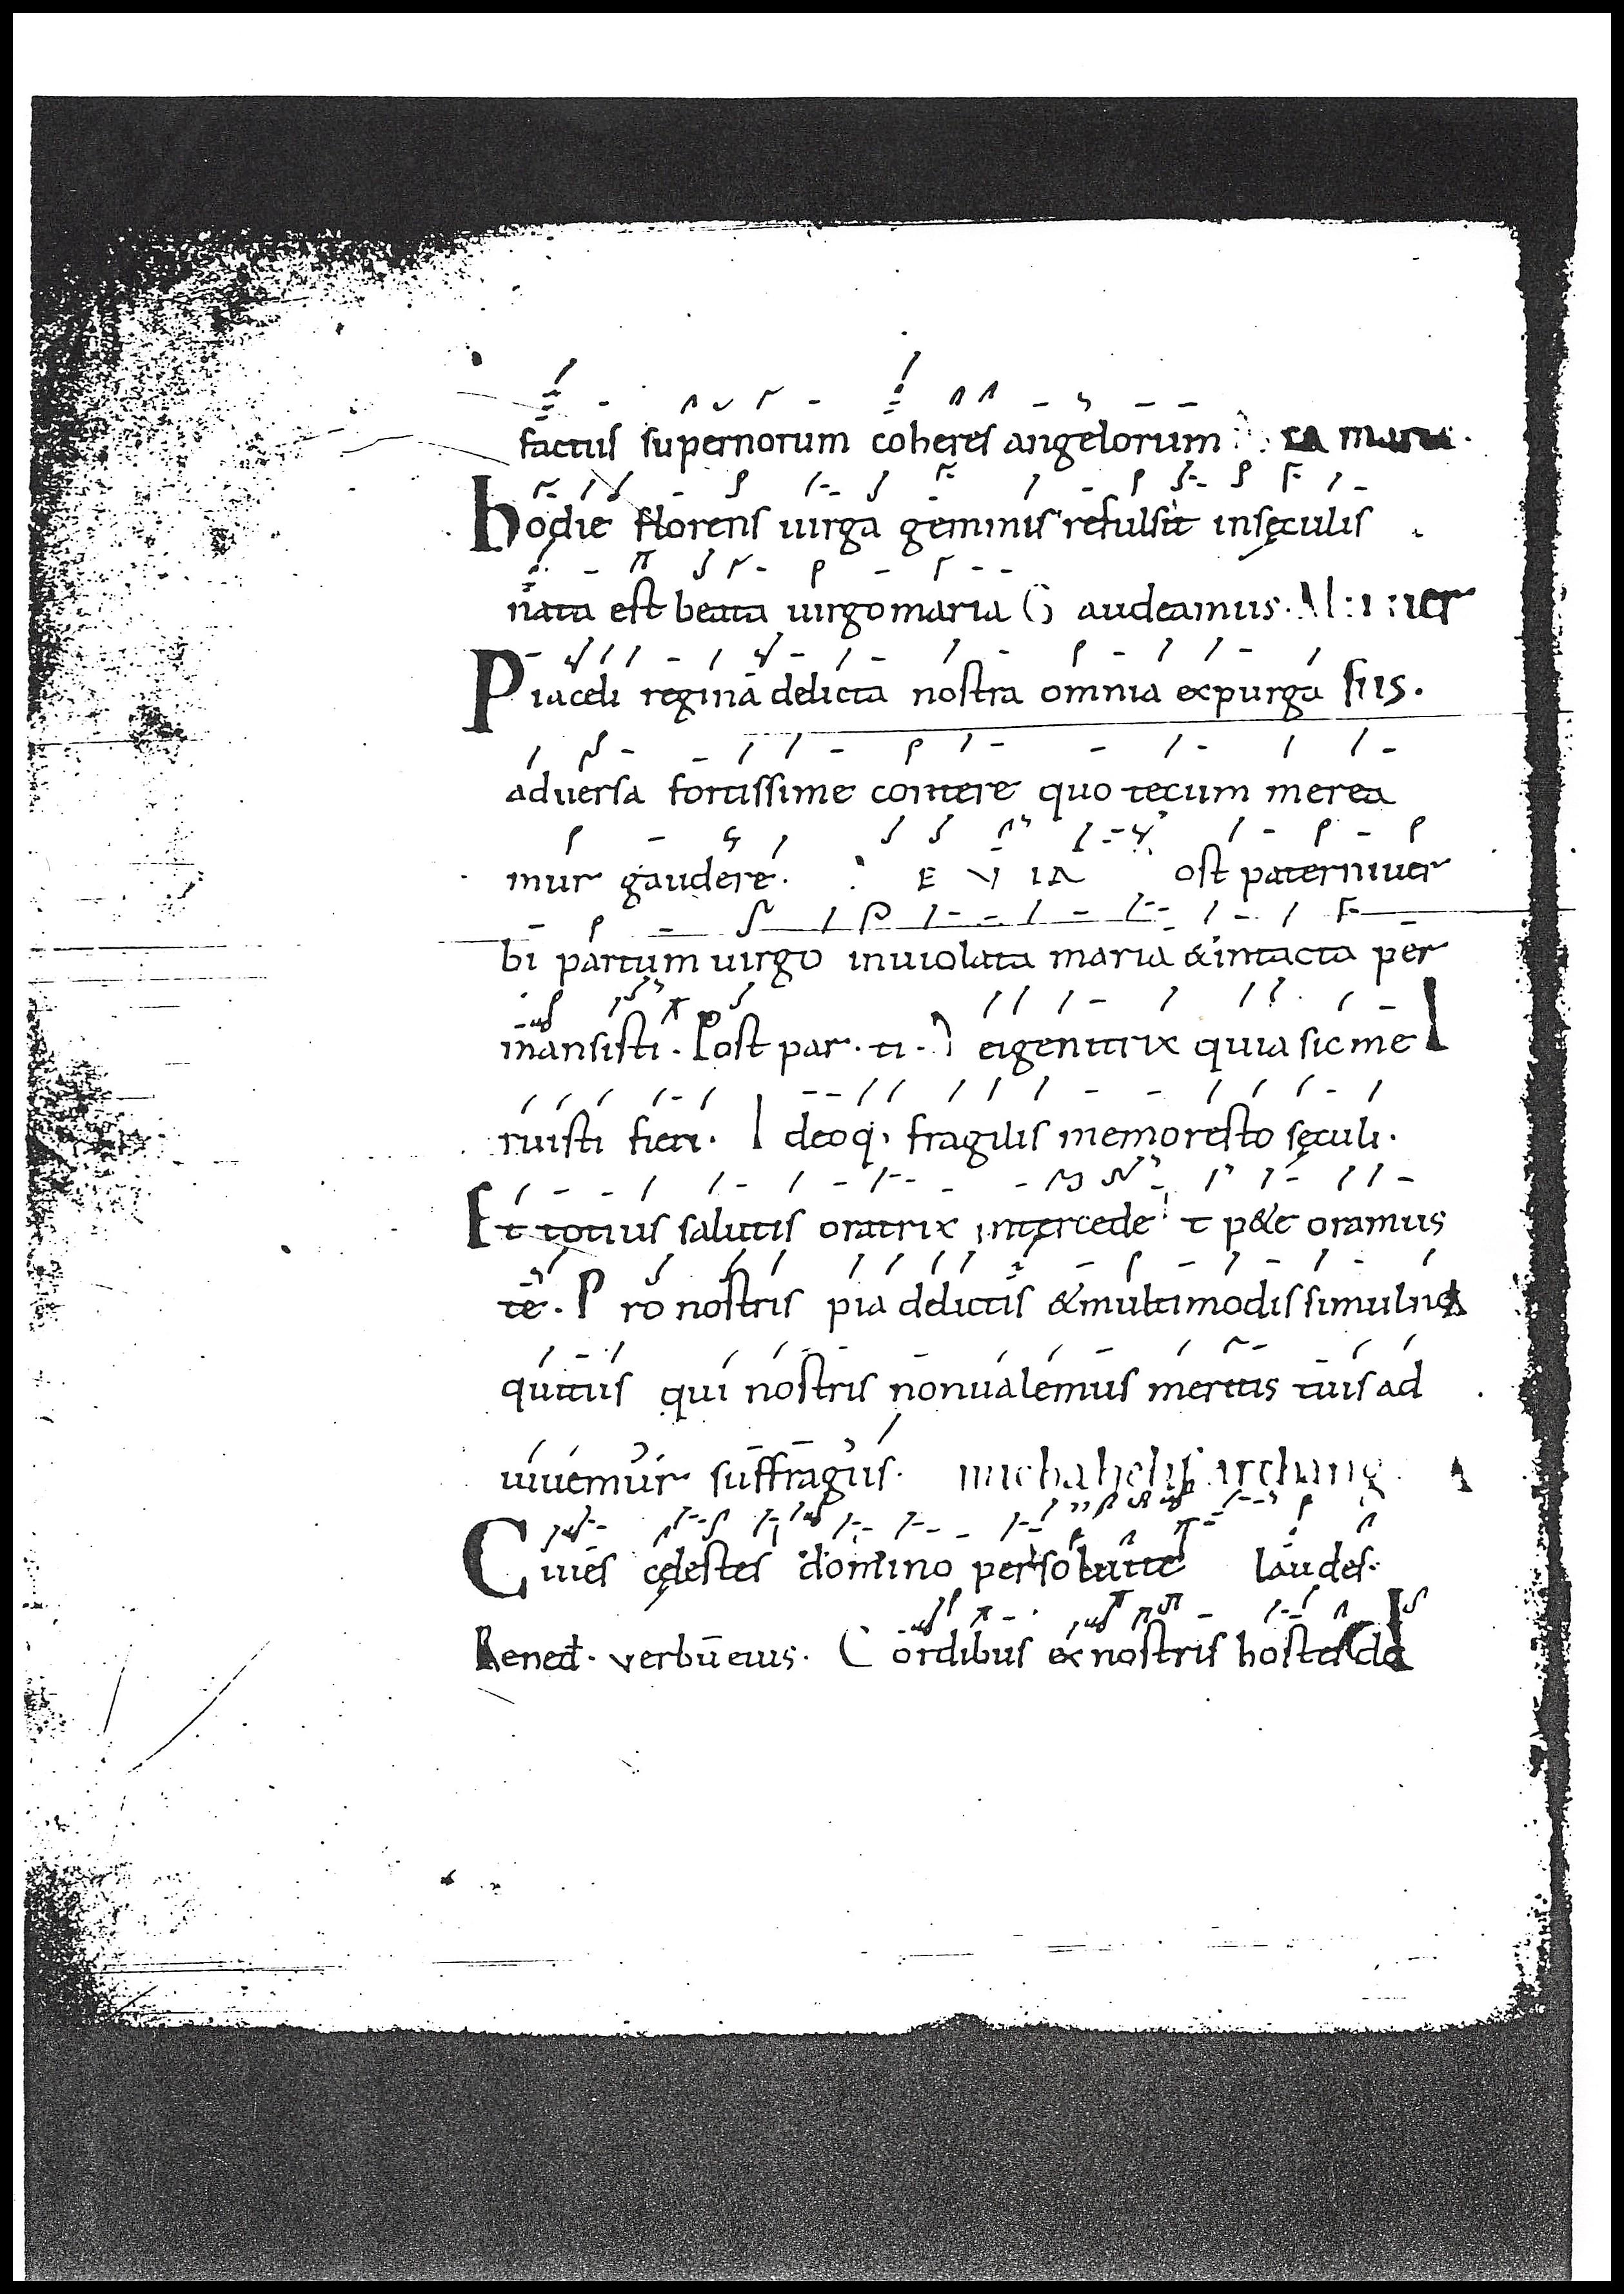 factus supernorum coheres angelorum ca maria.
hodie florens uirga geminis refulsit insęculis
nata est beata uirgo maria G audeamus.
Pia celi reginā delicta nostra omnia expurga
aduersa fortissime contere quo tecum merea
mur gaudere. E V IA ost paterni uer
bi partum uirgo inuiolata maria & intacta per
mansisti. Post par. ti. D eigenitrix quia sic me
ruisti fieri. I deoq, fragilis memoresto sęculi.
Et totius salutis oratrix intercede t p&e oramus
te. P ro nostris pia delictis & multimodis simul ne
quitiis qui nostris non ualemus meritis tuis ad
iuuemur suffragiis. michahelis archang
Ciues cęlestes domino persoluite laudes.
Bened. verbū eius. C ordibus ex nostris hostes de